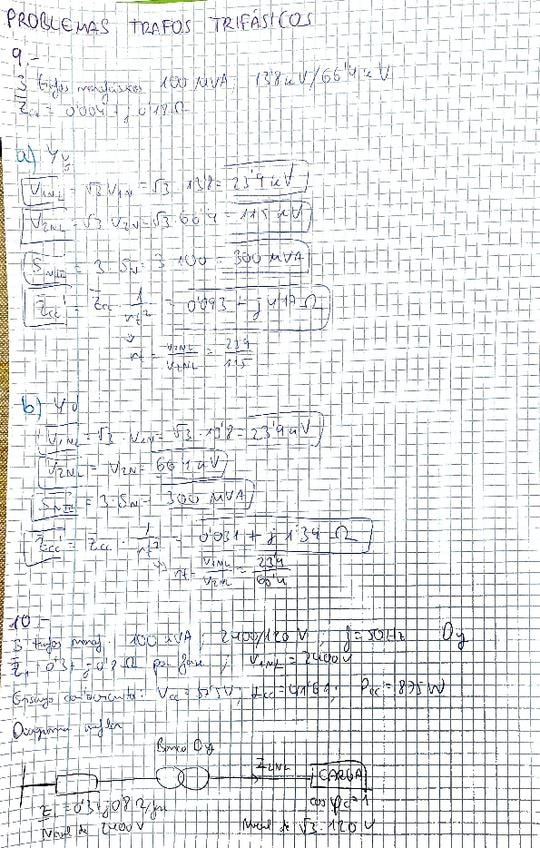 PROBLEMAS TRAFOS TRIFÁSICOS
9.-
3 trafos monofásicos 100 MVA; 13'8 kV/66'4 kV
Zcc = 0'004 + j 0'1 Ω
a) Yy
V1NL = √3 · V1N = √3 · 13'8 = 23'9 kV
V2NL = √3 · V2N = √3 · 66'4 = 115 kV
SN = 3 · SN = 3 · 100 = 300 MVA
Zcc' = Zcc · 1/rt² = 0'093 + j 4'17 Ω
rt = V1NL/V2NL = 23'9/115
b) Yd
V1NL = √3 · V1N = √3 · 13'8 = 23'9 kV
V2NL = V2N = 66'4 kV
SN = 3 · SN = 300 MVA
Zcc' = Zcc · 1/rt² = 0'031 + j 1'39 Ω
rt = V1NL/V2NL = 23'9/66'4
10.-
3 trafos monof. 100 kVA; 2400/120 V; f = 50 Hz Dy
j 0'8 Ω por fase; V1NL = 2400 V
Ensayo cortocircuito: Vcc = Icc = 41'6 A; Pcc = 875 W
Diagrama unifilar
Banco Dy I2NL CARGA
Z = 0'3 + j 0'8 Ω/fase cos φc = 1
Nivel de 2400 V Nivel de √3 · 120 V